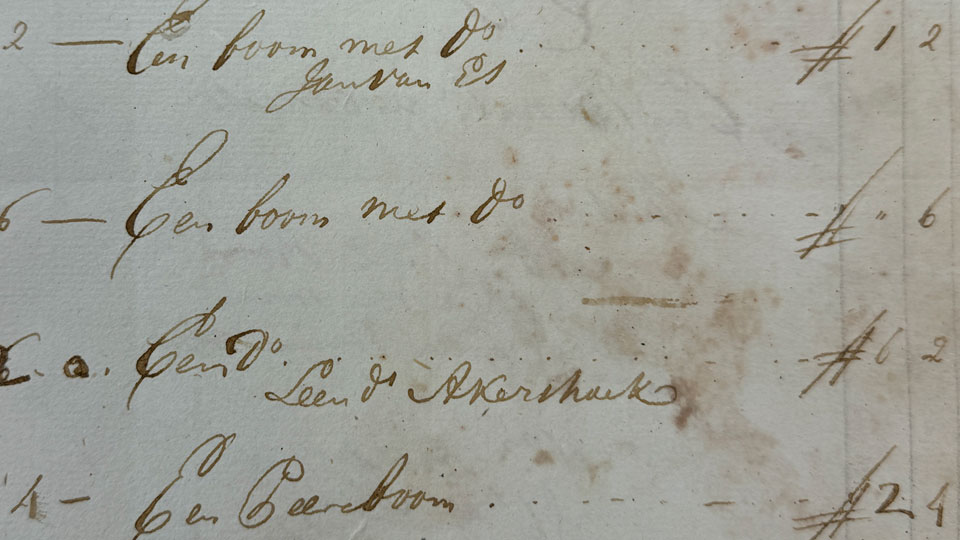 2 — Een boom met do . . . . . . # 1 2
Jan van Es
6 — Een boom met do . . . . . . # " 6
a. Een do . . . . . . # 6 2
Leend Akershoek
4 — Een Peereboom . . . . . . # 2 4